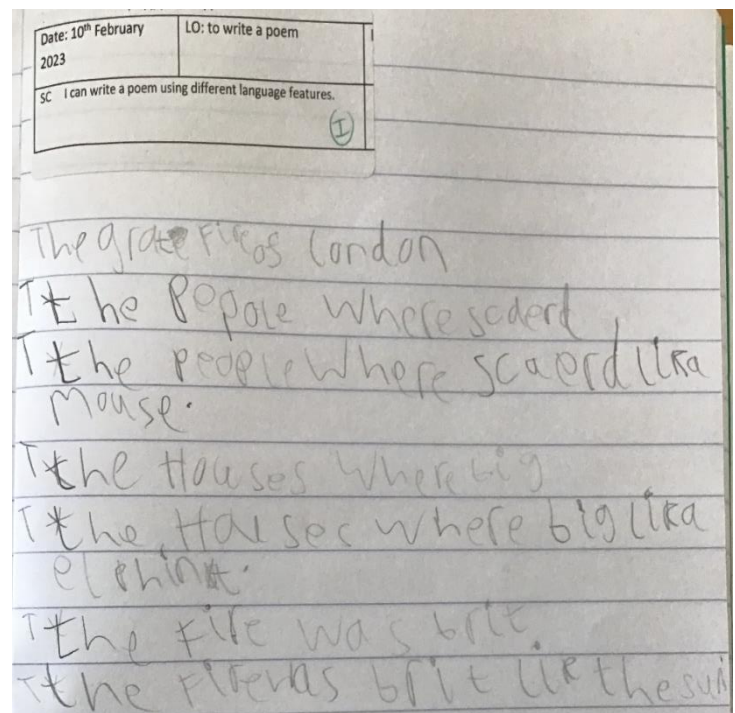 Date: 10th February
2023
LO: to write a poem
SC I can write a poem using different language features.
I
The grate Fire of London
The Pepole where scderd
The people where scaerd lika
mouse.
The Houses where big
The Houses where big lika
elphint.
The Fire was brit
The Firewas brit lik the sun